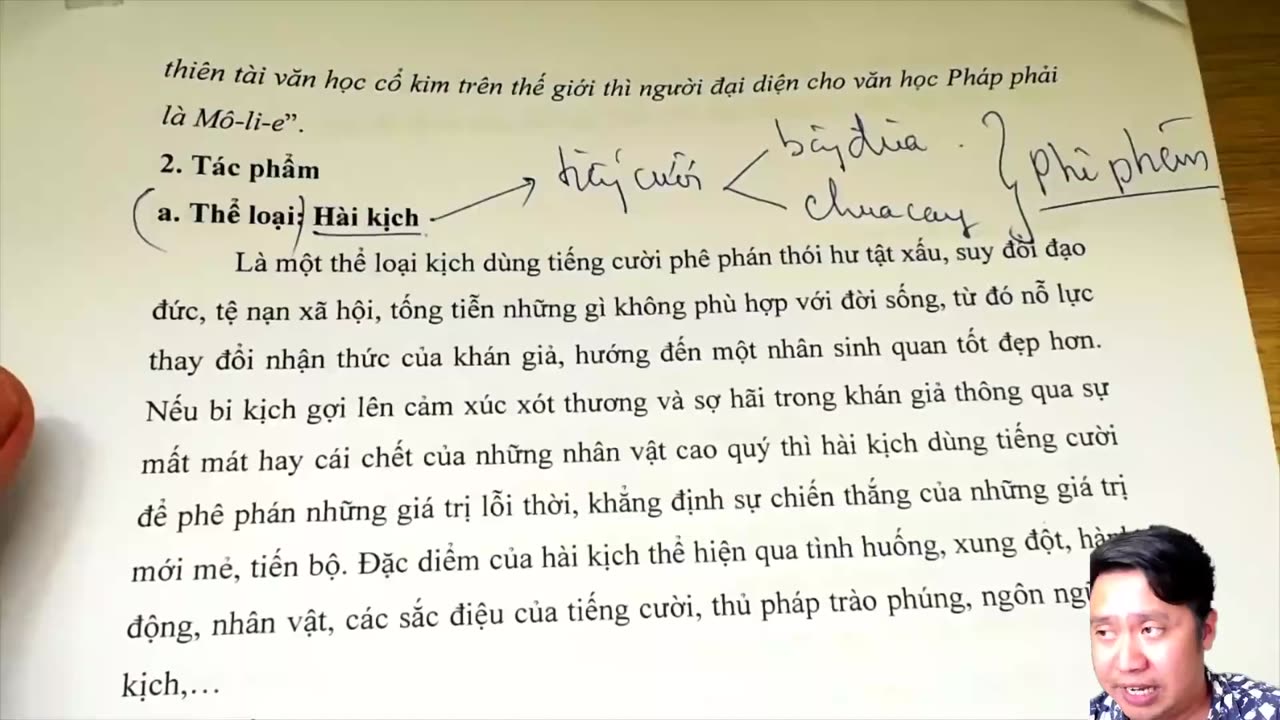 thiên tài văn học cổ kim trên thế giới thì người đại diện cho văn học Pháp phải
là Mô-li-e”.
2. Tác phẩm
a. Thể loại: Hài kịch
tiếng cười
chua cay
Là một thể loại kịch dùng tiếng cười phê phán thói hư tật xấu, suy đồi đạo
đức, tệ nạn xã hội, tống tiễn những gì không phù hợp với đời sống, từ đó nỗ lực
thay đổi nhận thức của khán giả, hướng đến một nhân sinh quan tốt đẹp hơn.
Nếu bi kịch gợi lên cảm xúc xót thương và sợ hãi trong khán giả thông qua sự
mất mát hay cái chết của những nhân vật cao quý thì hài kịch dùng tiếng cười
để phê phán những giá trị lỗi thời, khẳng định sự chiến thắng của những giá trị
mới mẻ, tiến bộ. Đặc diểm của hài kịch thể hiện qua tình huống, xung đột,
động, nhân vật, các sắc điệu của tiếng cười, thủ pháp trào phúng, ngôn
kịch,…